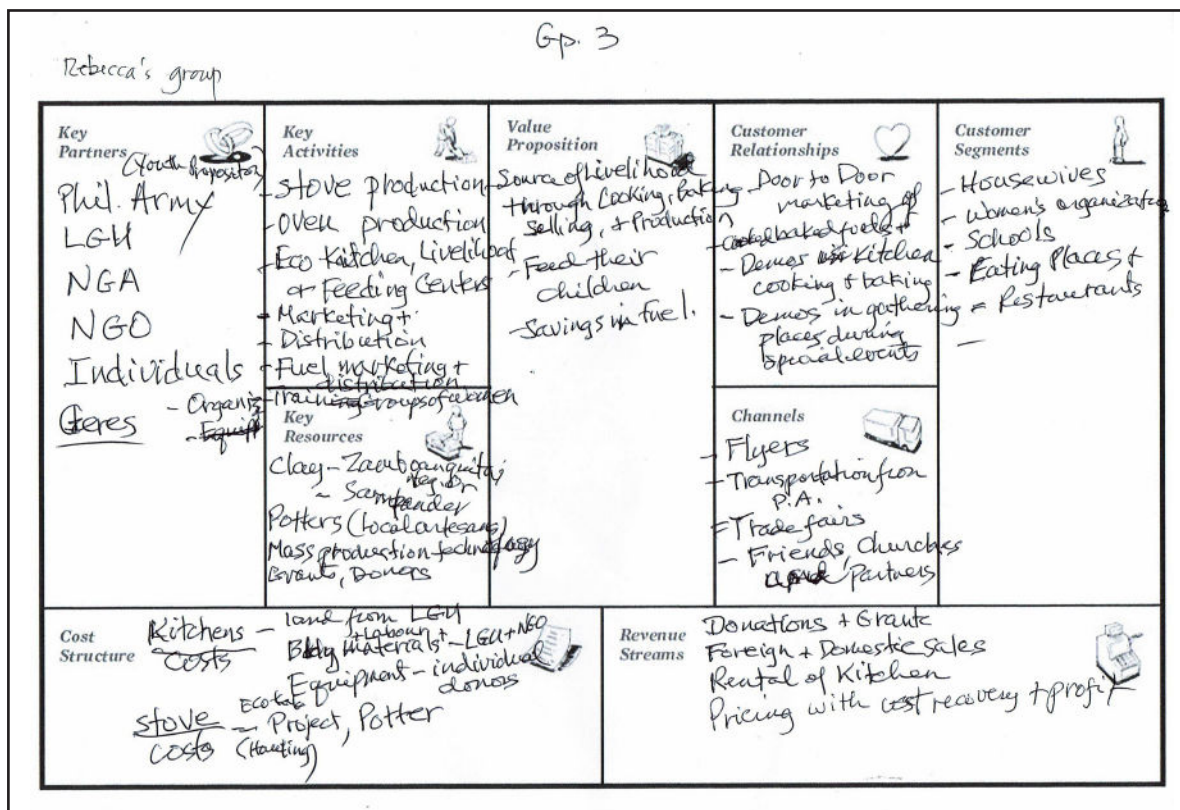 Gp. 3
Rebecca's group
Key
Partners
Phil. Army
LGU
NGA
NGO
Individuals
- Organiz
Key
Activities
- stove production
- oven production
- Eco Kitchen, Livelihood
or Feeding Centers
- Marketing +
- Distribution
- Fuel marketing +
distribution
- Training Groups of women
Key
Resources
Clay - Zamboanguita,
Neg. Or.
Potters (local artesans)
Mass production technology
Grants, Donors
Value
Proposition
- Source of Livelihood
through Cooking, Baking
Selling, + Production
- Feed their
children
- Savings in fuel.
Customer
Relationships
- Door to Door
marketing of
baked fuels +
- Demos Kitchen
cooking + baking
- Demos in gathering
places during
special events
Channels
- Flyers
- Transportation from
P.A.
= Trade fairs
- Friends, Churches
Partners
Customer
Segments
- Housewives
- Women's organization
- Schools
- Eating Places +
= Restaurants
-
Cost
Structure
Kitchens - land from LGU
Costs
+ Labour +
Bldg materials - LGU + NGO
Equipment - individual
donors
stove
costs
- Project, Potter
Revenue
Streams
Donations + Grants
Foreign + Domestic Sales
Rental of Kitchen
Pricing with cost recovery + profit